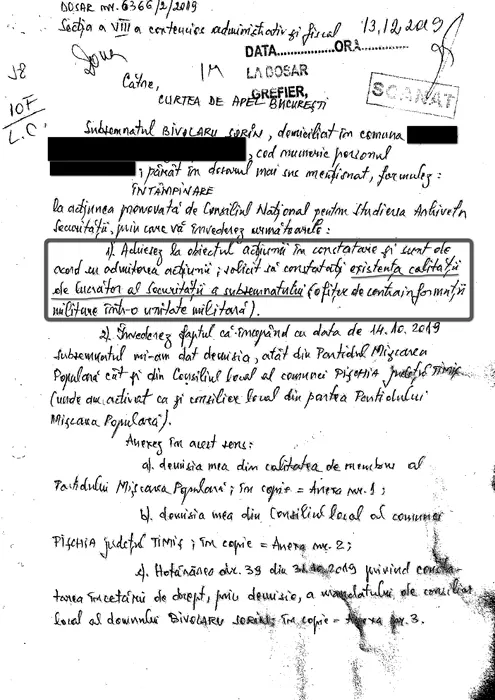 DOSAR nr. 6366/2/2019
Secția a VIII a contencios administrativ și fiscal
13.12.2019
DATA..............ORA.........
LA DOSAR
GREFIER,
SCANAT
Către,
CURTEA DE APEL BUCUREȘTI
Subsemnatul BIVOLARU SORIN, domiciliat în comuna
, cod numeric personal
, pârât în dosarul mai sus menționat, formulez:
ÎNTÂMPINARE
la acțiunea promovată de Consiliul Național pentru Studierea Arhivelor
Securității, prin care vă învederez următoarele:
1) Achiesez la obiectul acțiunii în constatare și sunt de
acord cu admiterea acțiunii; solicit să constatați existența calității
de lucrător al securității a subsemnatului (ofițer de contrainformații
militare într-o unitate militară).
2) Învederez faptul că începând cu data de 14.10.2019
subsemnatul mi-am dat demisia, atât din Partidul Mișcarea
Populară cât și din Consiliul local al comunei PIȘCHIA județul Timiș
(unde am activat ca și consilier local din partea Partidului
Mișcarea Populară).
Anexez în acest sens:
a). demisia mea din calitatea de membru al
Partidului Mișcarea Populară; în copie = Anexa nr. 1;
b). demisia mea din Consiliul local al comunei
PIȘCHIA județul TIMIȘ; în copie = Anexa nr. 2;
c). Hotărârea nr. 39 din 31.10.2019 privind consta-
tarea încetării de drept, prin demisie, a mandatului de consilier
local al domnului BIVOLARU SORIN; în copie = Anexa nr. 3.